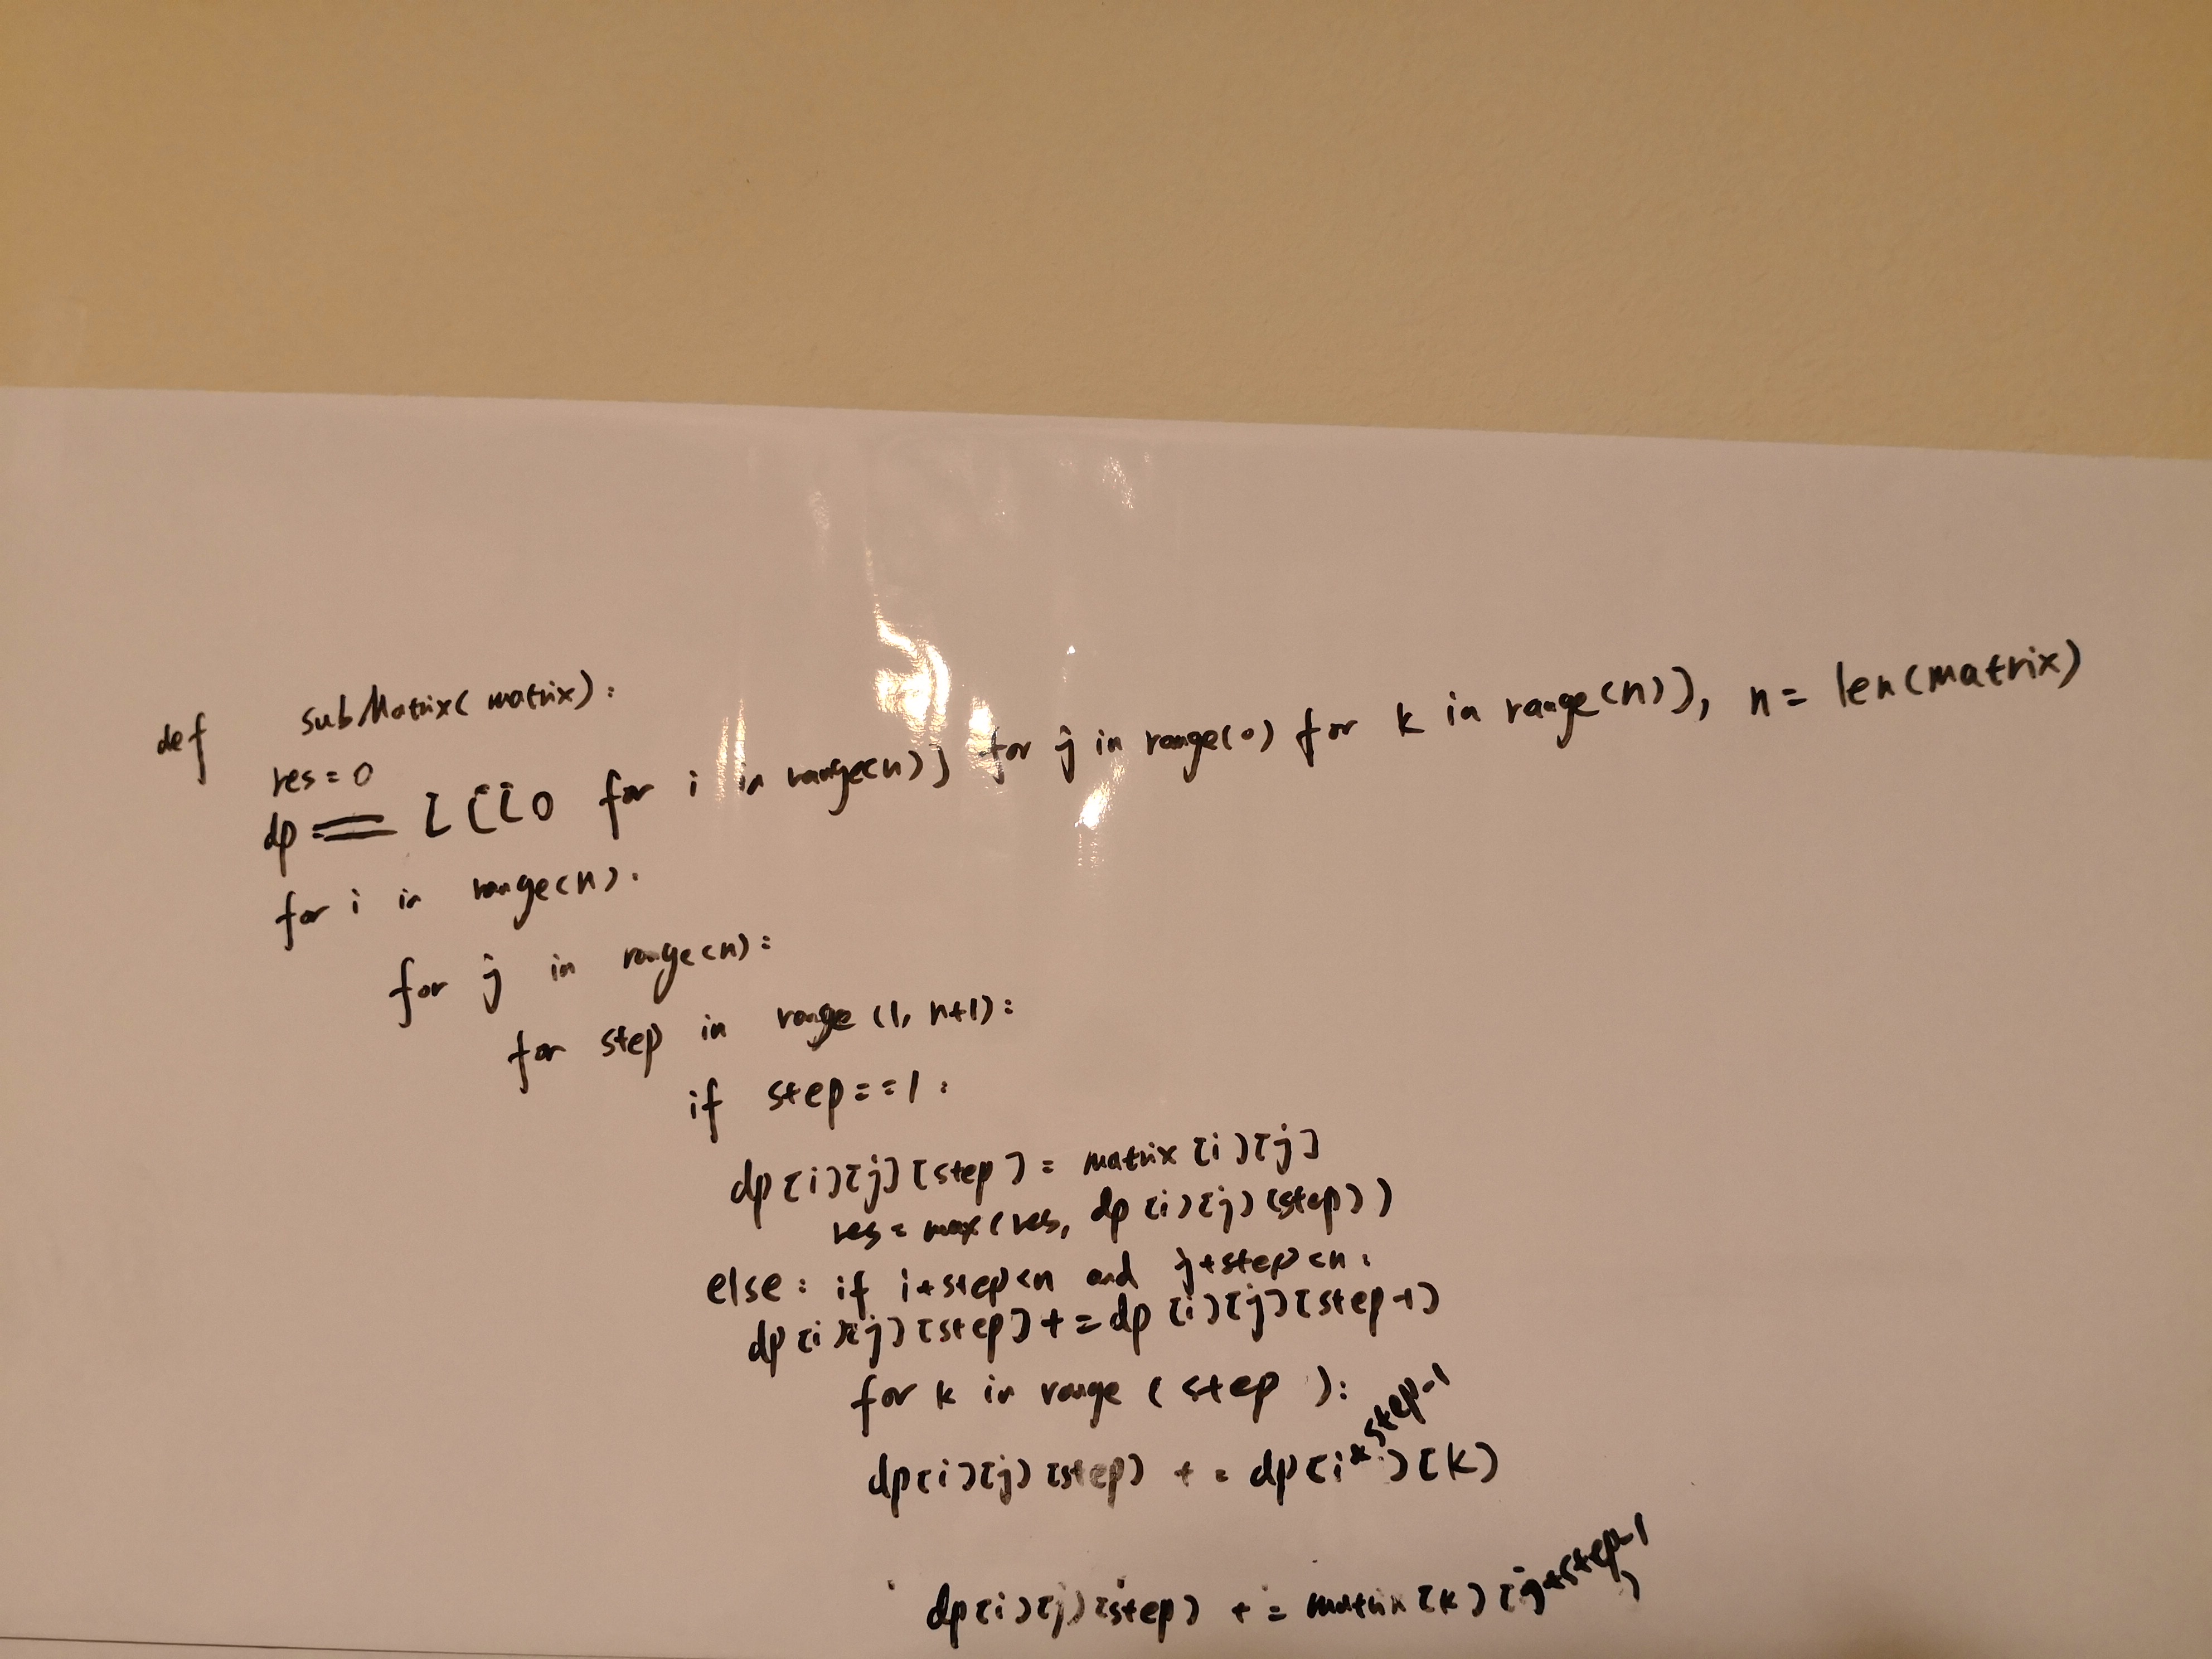 def subMatrix( matrix):
res = 0
dp = [ [ [ 0 for i in range(n) ] for j in range(0) for k in range(n) ], n = len(matrix)
for i in range(n).
for j in range(n):
for step in range (1, n+1):
if step==1:
dp[i][j][step] = matrix[i][j]
res = max(res, dp[i][j][step])
else: if i+step<n and j+step<n:
dp[i][j][step] += dp[i][j][step-1]
for k in range (step ):
dp[i][j][step] += dp[i+step-1][k]
dp[i][j][step] += matrix[k][j+step-1]